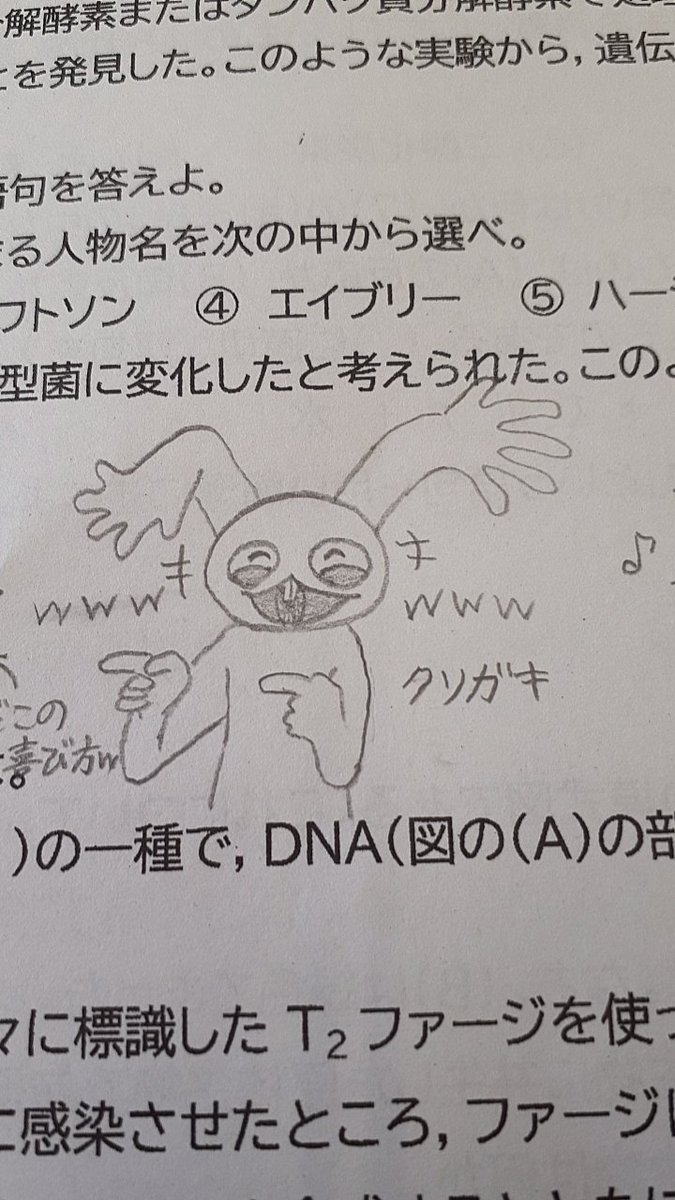 解酵素またはタンパク質分解酵素で処理
とを発見した。このような実験から，遺伝
語句を答えよ。
る人物名を次の中から選べ。
フトソン ④ エイブリー ⑤ ハー
型菌に変化したと考えられた。この
キ キ
www www
♪
クソガキ
どこの
喜び方w
)の一種で，DNA(図の(A)の部
々に標識した T₂ファージを使っ
に感染させたところ，ファージ